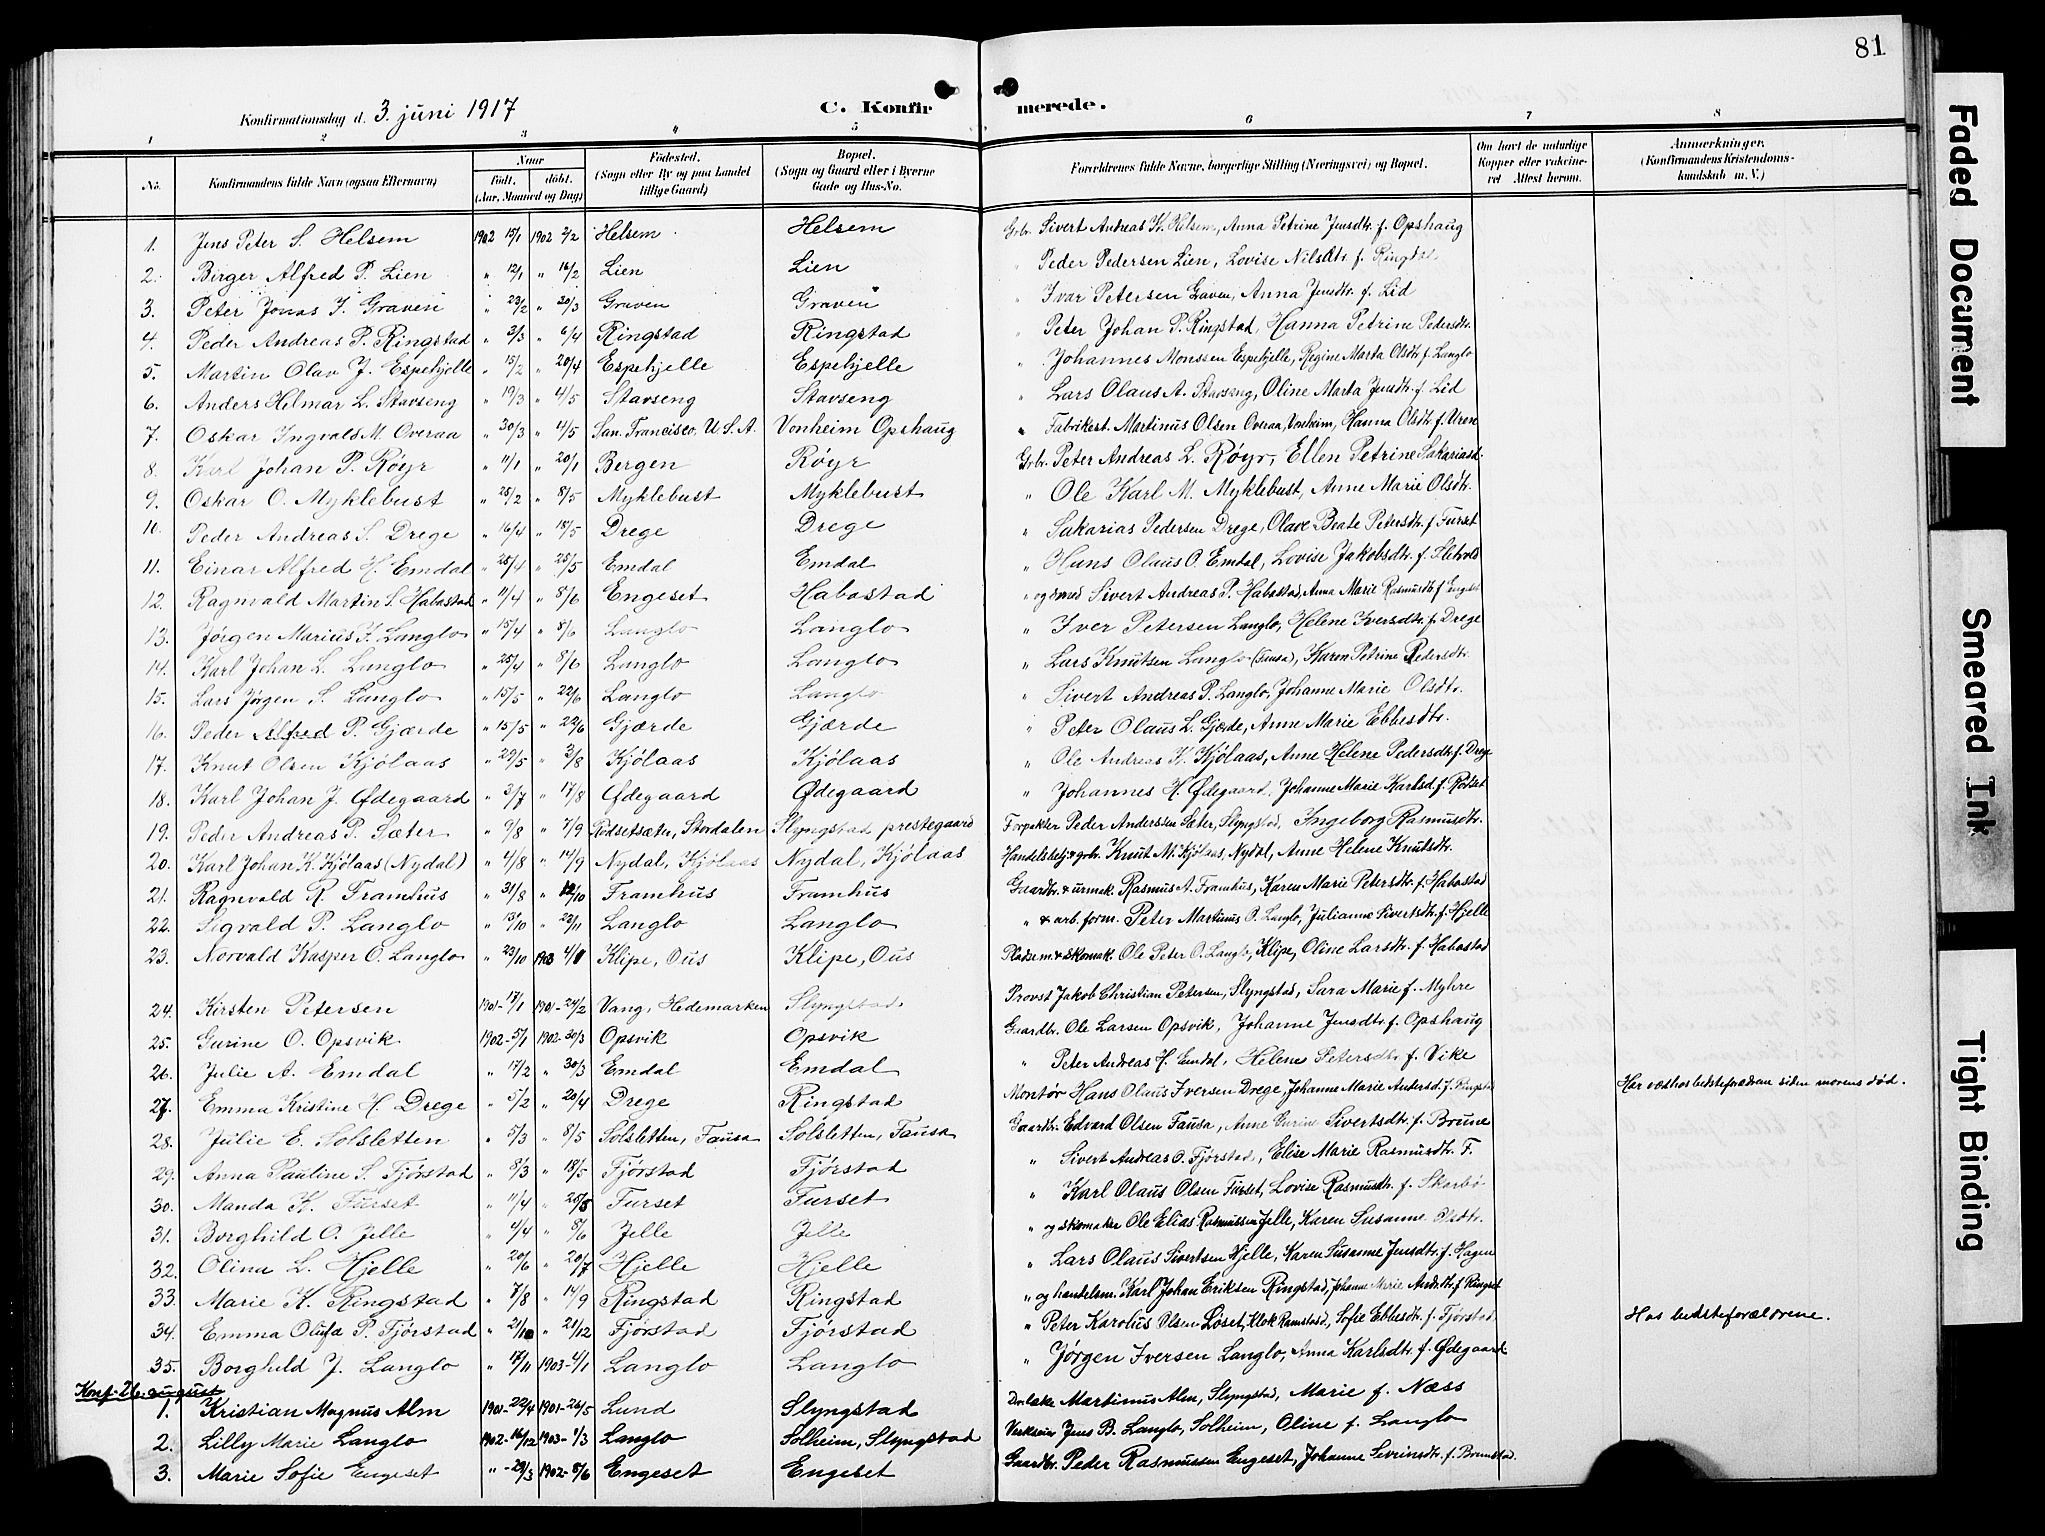 81
Konfirmationsdag d. 3. juni 1917 C. Konfirmerede.
1 2 3 4 5 6 7 8
No. Konfirmandens fulde Navn (ogsaa Efternavn) Naar Födt. döbt. (Aar, Maaned og Dag) Födested. (Sogn eller By og paa Landet tillige Gaard) Bopæl. (Sogn og Gaard eller i Byerne Gade og Hus-No. Forældrenes fulde Navne, borgerlige Stilling (Næringsvei) og Bopæl. Om havt de naturlige Kopper eller vakcineret Attest herom. Anmerkninger. (Konfirmandens Kristendomskundskab m. V.)
1. Jens Peter S. Helsem 1902 15/1 1902 2/2 Helsem Helsem Grbr. Sivert Andreas K. Helsem, Anna Petrine Jensdtr. f. Opshaug
2. Birger Alfred P. Lien " 12/1 " 16/2 Lien Lien " Peder Pedersen Lien, Lovise Nilsdtr. f. Ringdal
3. Peter Jonas I. Graven " 23/2 " 30/3 Graven Graven " Ivar Petersen Gaven, Anna Jensdtr. f. Lid
4. Peder Andreas P. Ringstad " 3/3 " 6/4 Ringstad Ringstad " Peter Johan P. Ringstad, Hanna Petrine Pedersdtr.
5. Martin Olav J. Espehjelle " 15/2 " 20/4 Espehjelle Espehjelle " Johannes Monssen Espehjelle, Regine Marta Olsdtr. f. Langlo
6. Anders Hilmar L. Stavseng " 19/3 " 4/5 Stavseng Stavseng " Lars Olaus A. Stavseng, Oline Marta Jensdtr. f. Lid
7. Oskar Ingvald M. Overaa " 30/3 " 4/5 San. Francisco, U. S. A. Vonheim Opshaug " Fabrikert. Martinus Olsen Overaa, Vonheim, Hanna Olsdtr. f. Uren
8. Karl Johan P. Røyr " 11/1 " 20/1 Bergen Røyr Grbr. Peter Andreas L. Røyr, Ellen Petrine Sakariasd.
9. Oskar O. Myklebust " 25/2 " 8/5 Myklebust Myklebust " Ole Karl M. Myklebust, Anne Marie Olsdtr.
10. Peder Andreas S. Drege " 16/4 " 18/5 Drege Drege " Sakarias Pedersen Drege, Olave Beate Petersdtr. f. Furset
11. Einar Alfred H. Emdal " 25/4 " 25/5 Emdal Emdal " Hans Olaus O. Emdal, Lovise Jakobsdtr. f. Sletvold
12. Ragnvald Martin S. Habostad " 11/4 " 8/6 Engeset Habostad " og smed Sivert Andreas P. Habostad, Anna Marie Rasmusdtr. f. Engeset
13. Jørgen Marius I. Langlo " 15/4 " 8/6 Langlo Langlo " Iver Petersen Langlo, Helene Iversdtr. f. Drege
14. Karl Johan L. Langlo " 25/4 " 8/6 Langlo Langlo " Lars Knutsen Langlo (Fausa), Karen Petrine Pedersdtr.
15. Lars Jørgen S. Langlo " 15/5 " 22/6 Langlo Langlo " Sivert Andreas P. Langlo, Johanne Marie Olsdtr.
16. Peder Alfred P. Gjærde " 15/5 " 22/6 Gjærde Gjærde " Peter Olaus L. Gjæde, Anne Marie Ebbesdtr.
17. Knut Olsen Kjölaas " 29/5 " 3/8 Kjölaas Kjölaas " Ole Andreas K. Kjölaas, Anne Helene Pedersdtr. f. Drege
18. Karl Johan J. Ødegaard " 3/7 " 17/8 Ødegaard Ødegaard " Johannes H. Ødegaard, Johanne Marie Karlsd. f. Rødset
19. Peder Andreas P. Sæter " 9/8 " 7/9 Rödsetsæter, Stordalen Slyngstad prestegaard Forpakter Peder Anderssen Sæter, Slyngstad, Ingeborg Rasmusdtr.
20. Karl Johan K. Kjölaas (Nydal) " 4/8 " 14/9 Nydal, Kjölaas Nydal, Kjölaas Handelsbetj. & grbr. Knut M. Kjölaas, Nydal, Anne Helene Knutsdtr.
21. Ragnvald R. Framhus " 31/8 " 12/10 Framhus Framhus Gaardbr. & urmak. Rasmus A. Framhus, Karen Marie Petersdtr. f. Habostad
22. Sigvald P. Langlo " 13/10 " 22/11 Langlo Langlo " & arb. form. Peter Martinus O. Langlo, Julianne Sivertsdtr. f. Hjelle
23. Norvald Kasper O. Langlo " 23/10 1903 4/1 Klipe, Ous Klipe, Ous Pladsem. & skomak. Ole Peter O. Langlo, Klipe, Oline Larsdtr. f. Habostad
24. Kirsten Petersen 1901- 17/1 1901- 24/2 Vang, Hedemarken Slyngstad Provst Jakob Christian Petersen, Slyngstad, Sara Marie f. Myhre
25. Gurine O. Opsvik 1902- 5/1 1902- 30/3 Opsvik Opsvik Gaardbr. Ole Larsen Opsvik, Johanne Jensdtr. f. Opshaug
26. Julie A. Emdal " 17/2 " 30/3 Emdal Emdal " Peter Andreas H. Emdal, Helene Petersdtr. f. Vike
27. Emma Kristine H. Drege " 5/2 " 20/4 Drege Ringstad Montör Hans Olaus Iversen Drege, Johanne Marie Andersd. f. Ringstad Har været hos bedsteforældrene siden morens död.
28. Julie E. Solsletten " 5/3 " 8/5 Solsletten, Fausa Solsletten, Fausa Gaardbr. Edvard Olsen Fausa, Anne Gurine Sivertsdtr. f. Brune
29. Anna Pauline S. Fjörstad " 8/3 " 18/5 Fjörstad Fjörstad " Sivert Andreas O. Fjørstad, Elise Marie Rasmusdtr. F.
30. Manda K. Furset " 11/4 " 25/5 Furset Furset " Karl Olaus Olsen Furset, Lovise Rasmusdtr. f. Skarbö
31. Borghild O. Jelle " 4/4 " 8/6 Jelle Jelle " og skomaker Ole Elias Rasmussen Jelle, Karen Susanne Olsdtr.
32. Olina L. Hjelle " 20/6 " 20/7 Hjelle Hjelle " Lars Olaus Sivertsen Hjelle, Karen Susanne Jensdtr. f. Hagen
33. Marie K. Ringstad " 7/8 " 14/9 Ringstad Ringstad " og handelsm. Karl Johan Eriksen Ringstad, Johanne Marie Andr.dtr. f. Ringset
34. Emma Olufa P. Fjörstad " 21/10 " 21/12 Fjörstad Fjörstad " Peter Karolius Olsen Löset, Klok Ramstad, Sofie Ebbesdtr. f. Fjörstad Hos bedsteforældrene.
35. Borghild J. Langlo " 17/11 1903- 4/1 Langlo Langlo " Jørgen Iversen Langlo, Anna Karlsdtr. f. Ødegaard
Konf. 26. august
1. Kristian Magnus Alm 1901- 22/4 1901- 26/5 Lund Slyngstad Dr. læke Martinus Alm, Slyngstad, Marie f. Næss
2. Lilly Marie Langlo 1902- 16/12 1903- 1/3 Langlo Solheim, Slyngstad Jens B. Langlo, Solheim, Oline f. Langlo
3. Marie Sofie Engeset " - 29/3 1902- 8/6 Engeset Engeset Gaardbr. Peder Rasmussen Engeset, Johanne Sevrinsdtr. f. Brunstad.
Faded Document
Smeared Ink
Tight Binding